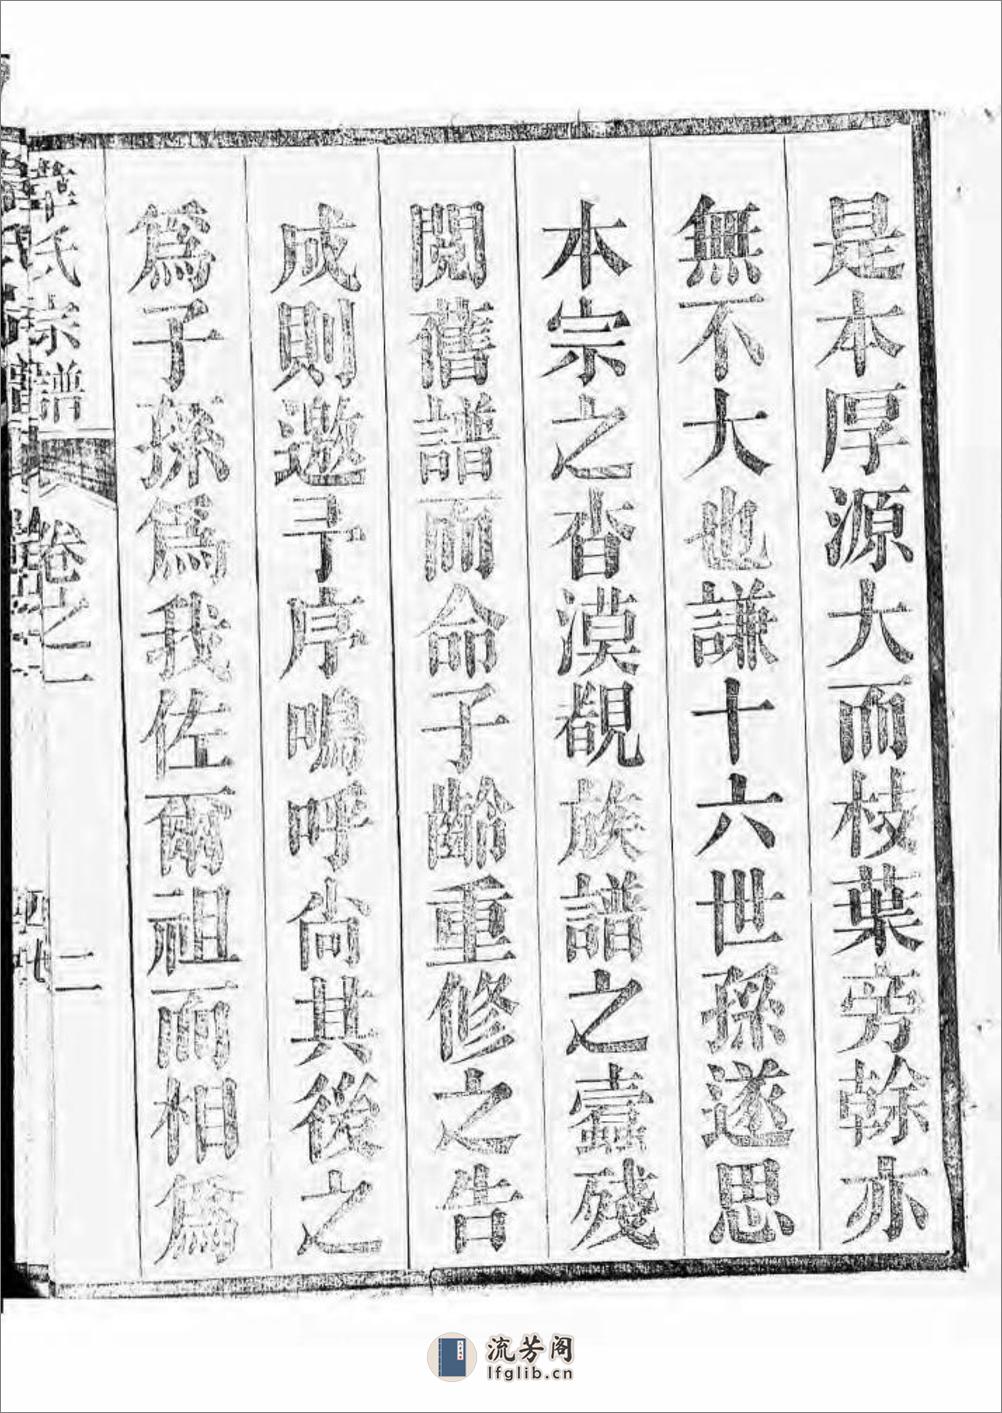 是本厚源大而枝葉旁榦亦
無不大也謙十六世孫遂思
本宗之杳漠覩族譜之蠹殘
閱舊譜而命子齡重修之告
成則邀予序嗚呼尙其後之
爲子孫爲我佐爾祖而相爲
氏宗譜
卷之一
二
流芳阁
lfglib.cn